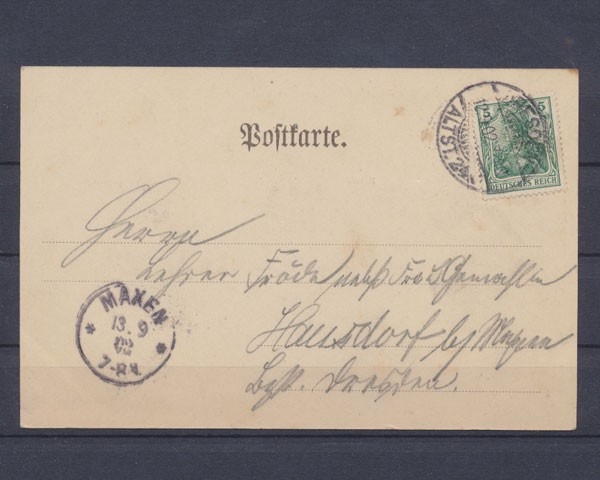 Postkarte.
5 5
DEUTSCHES REICH
ALTST.
Herrn
Lehrer Fröde nebst Frau Gemahlin
Hausdorf b/ Maxen
Bez. Dresden.
MAXEN
13. 9
02
7-8 N.